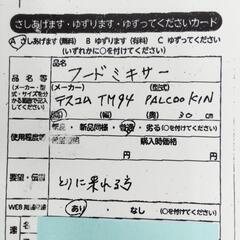 さしあげます・ゆずります・ゆずってくださいカード
A さしあげます（無料） B ゆずります（有料） C ゆずってください
（いずれかに○を付けてください）
品名等
（メーカー・型式・サイズを分かる範囲で記入してください）
品名
フードミキサー
メーカー 型式
テスコム TM94 PALCOO KIN
奥 30 cm
使用程度
新品・新品同様・普通・劣る（○を付けてください）
購入時価格
要望・伝言
とりに来れる方
WEB掲載可
あり・なし（○を付けてください）
連